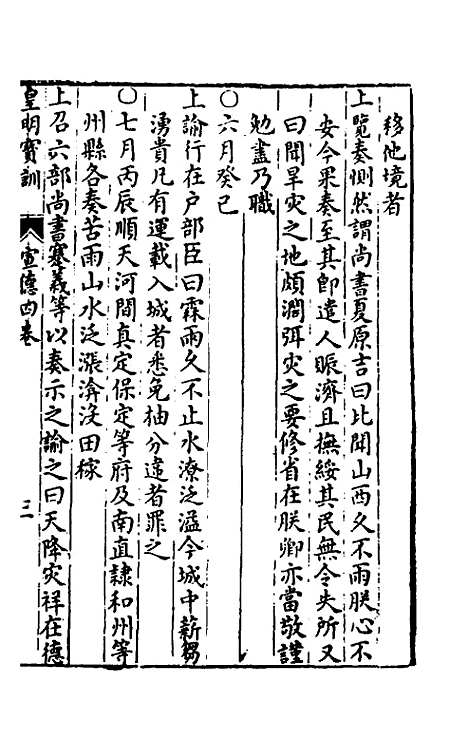 移他境者
上覽奏惻然謂尚書夏原吉曰比聞山西久不雨朕心不
安今果奏至其卽遣人賑濟且撫綏其民無令失所又
曰聞旱灾之地頗濶弭灾之要修省在朕卿亦當敬謹
勉盡乃職
○六月癸巳
上諭行在户部臣曰霖雨久不止水潦泛溢今城中薪芻
湧貴凡有運載入城者悉免抽分違者罪之
○七月丙辰順天河間真定保定等府及南直隷和州等
州縣各奏苦雨山水泛漲渰没田稼
上召六部尚書蹇義等以奏示之諭之曰天降灾祥在德
皇明寳訓 宣德四卷 三